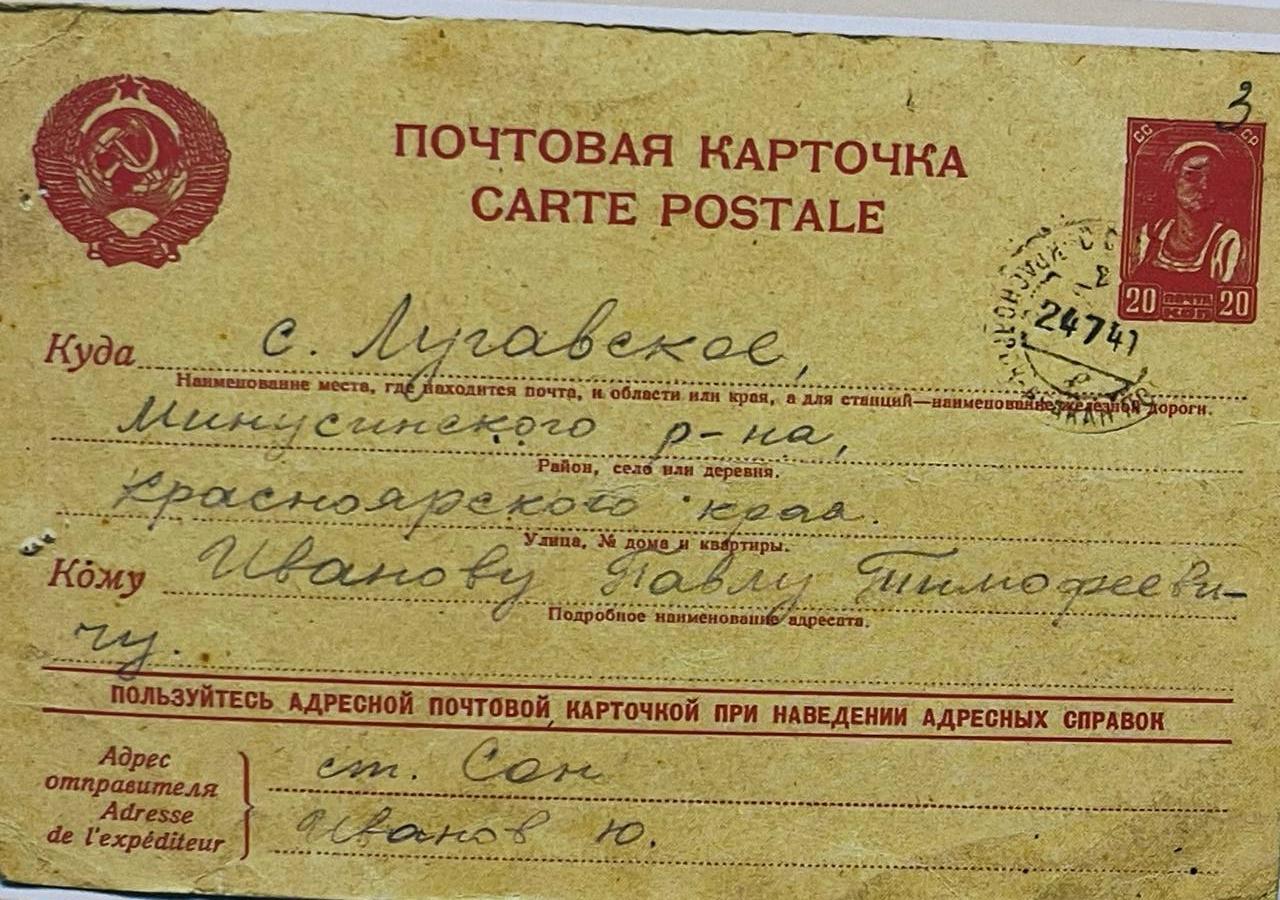 3
ПОЧТОВАЯ КАРТОЧКА
CARTE POSTALE
СС СР
20 ПОЧТА КОП 20
24741
Куда с. Лугавское,
Наименование места, где находится почта, и области или края, а для станций—наименование железной дороги.
Минусинского р-на,
Район, село или деревня.
Красноярского края.
Улица, № дома и квартиры.
Кому Иванову Павлу Тимофееви-
Подробное наименование адресата.
чу.
ПОЛЬЗУЙТЕСЬ АДРЕСНОЙ ПОЧТОВОЙ КАРТОЧКОЙ ПРИ НАВЕДЕНИИ АДРЕСНЫХ СПРАВОК
Адрес
отправителя
Adresse
de l'expéditeur
ст. Сон
Иванов Ю.